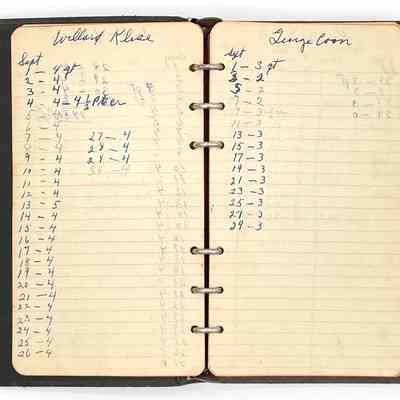 Willard Klise
Sept
1 – 4 qt
2 – 4
3 – 4
4 – 4 – 4 1/3
7 – 4
8 – 4
9 – 4
10 – 4
11 – 4
12 – 4
13 – 5
14 – 4
15 – 4
16 – 4
17 – 4
18 – 4
19 – 4
20 – 4
21 – 4
22 – 4
23 – 4
24 – 4
25 – 4
26 – 4
27 – 4
28 – 4
29 – 4
30 – 4
George Coon
Sept
1 – 3 pt
3 – 2
5 – 2
7 – 2
11 – 3
13 – 3
15 – 3
17 – 3
19 – 3
21 – 3
23 – 3
25 – 3
27 – 3
29 – 3